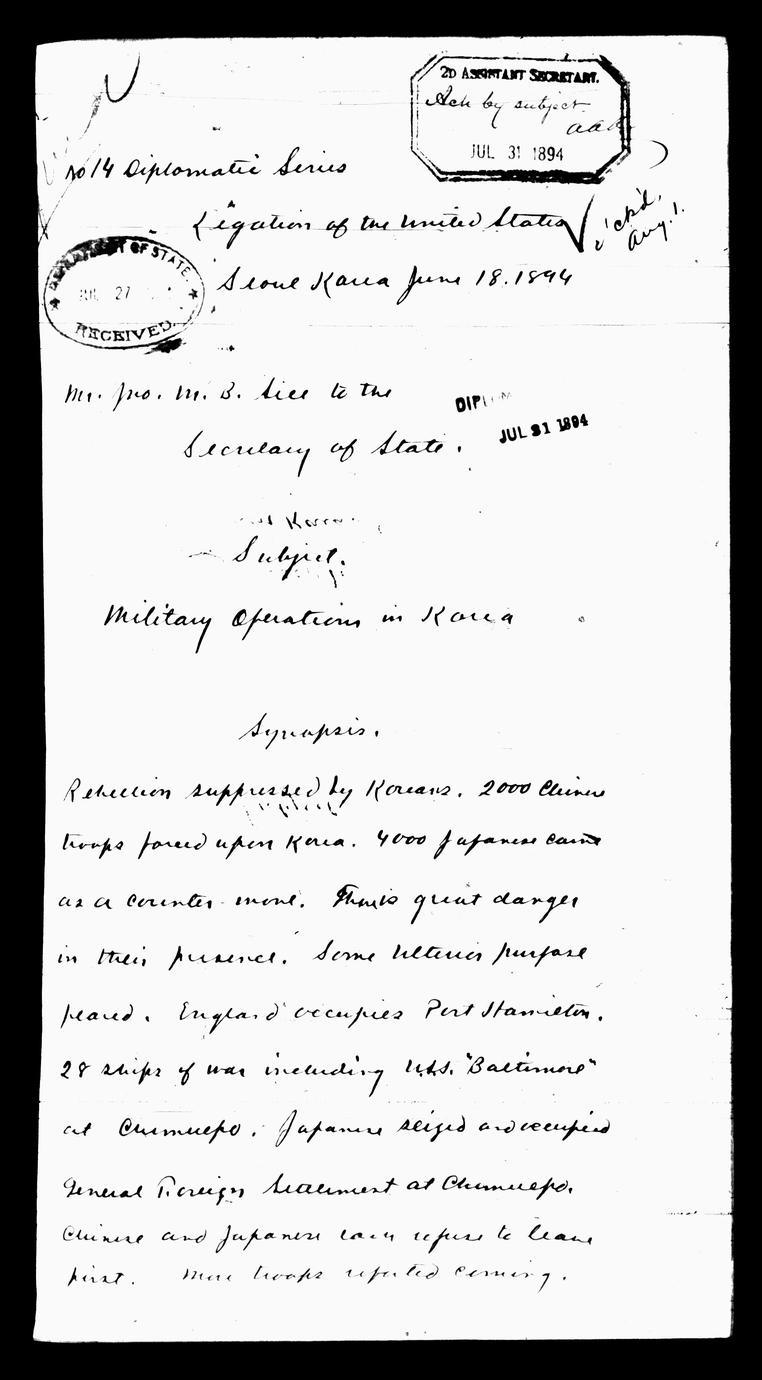 2D ASSISTANT SECRETARY.
Ack by subject
aaa
JUL 31 1894
No 14 Diplomatic Series
Legation of the United States
c'ck'd,
Aug. 1.
DEPARTMENT OF STATE.
JUL 27
RECEIVED
Seoul Korea June 18. 1894
Mr. Jno. M. B. Sill to the
Secretary of State.
JUL 31 1894
Korea
Subject.
Military Operations in Korea
Synopsis.
Rebellion suppressed by Koreans. 2000 Chinese
troops forced upon Korea. 4000 Japanese came
as a counter move. There is great danger
in their presence. Some ulterior purpose
feared. England occupies Port Hamilton.
28 ships of war including U.S.S. "Baltimore"
at Chemulpo. Japanese seized and occupied
General Foreign Settlement at Chemulpo.
Chinese and Japanese each refuse to leave
first. More troops reported coming.